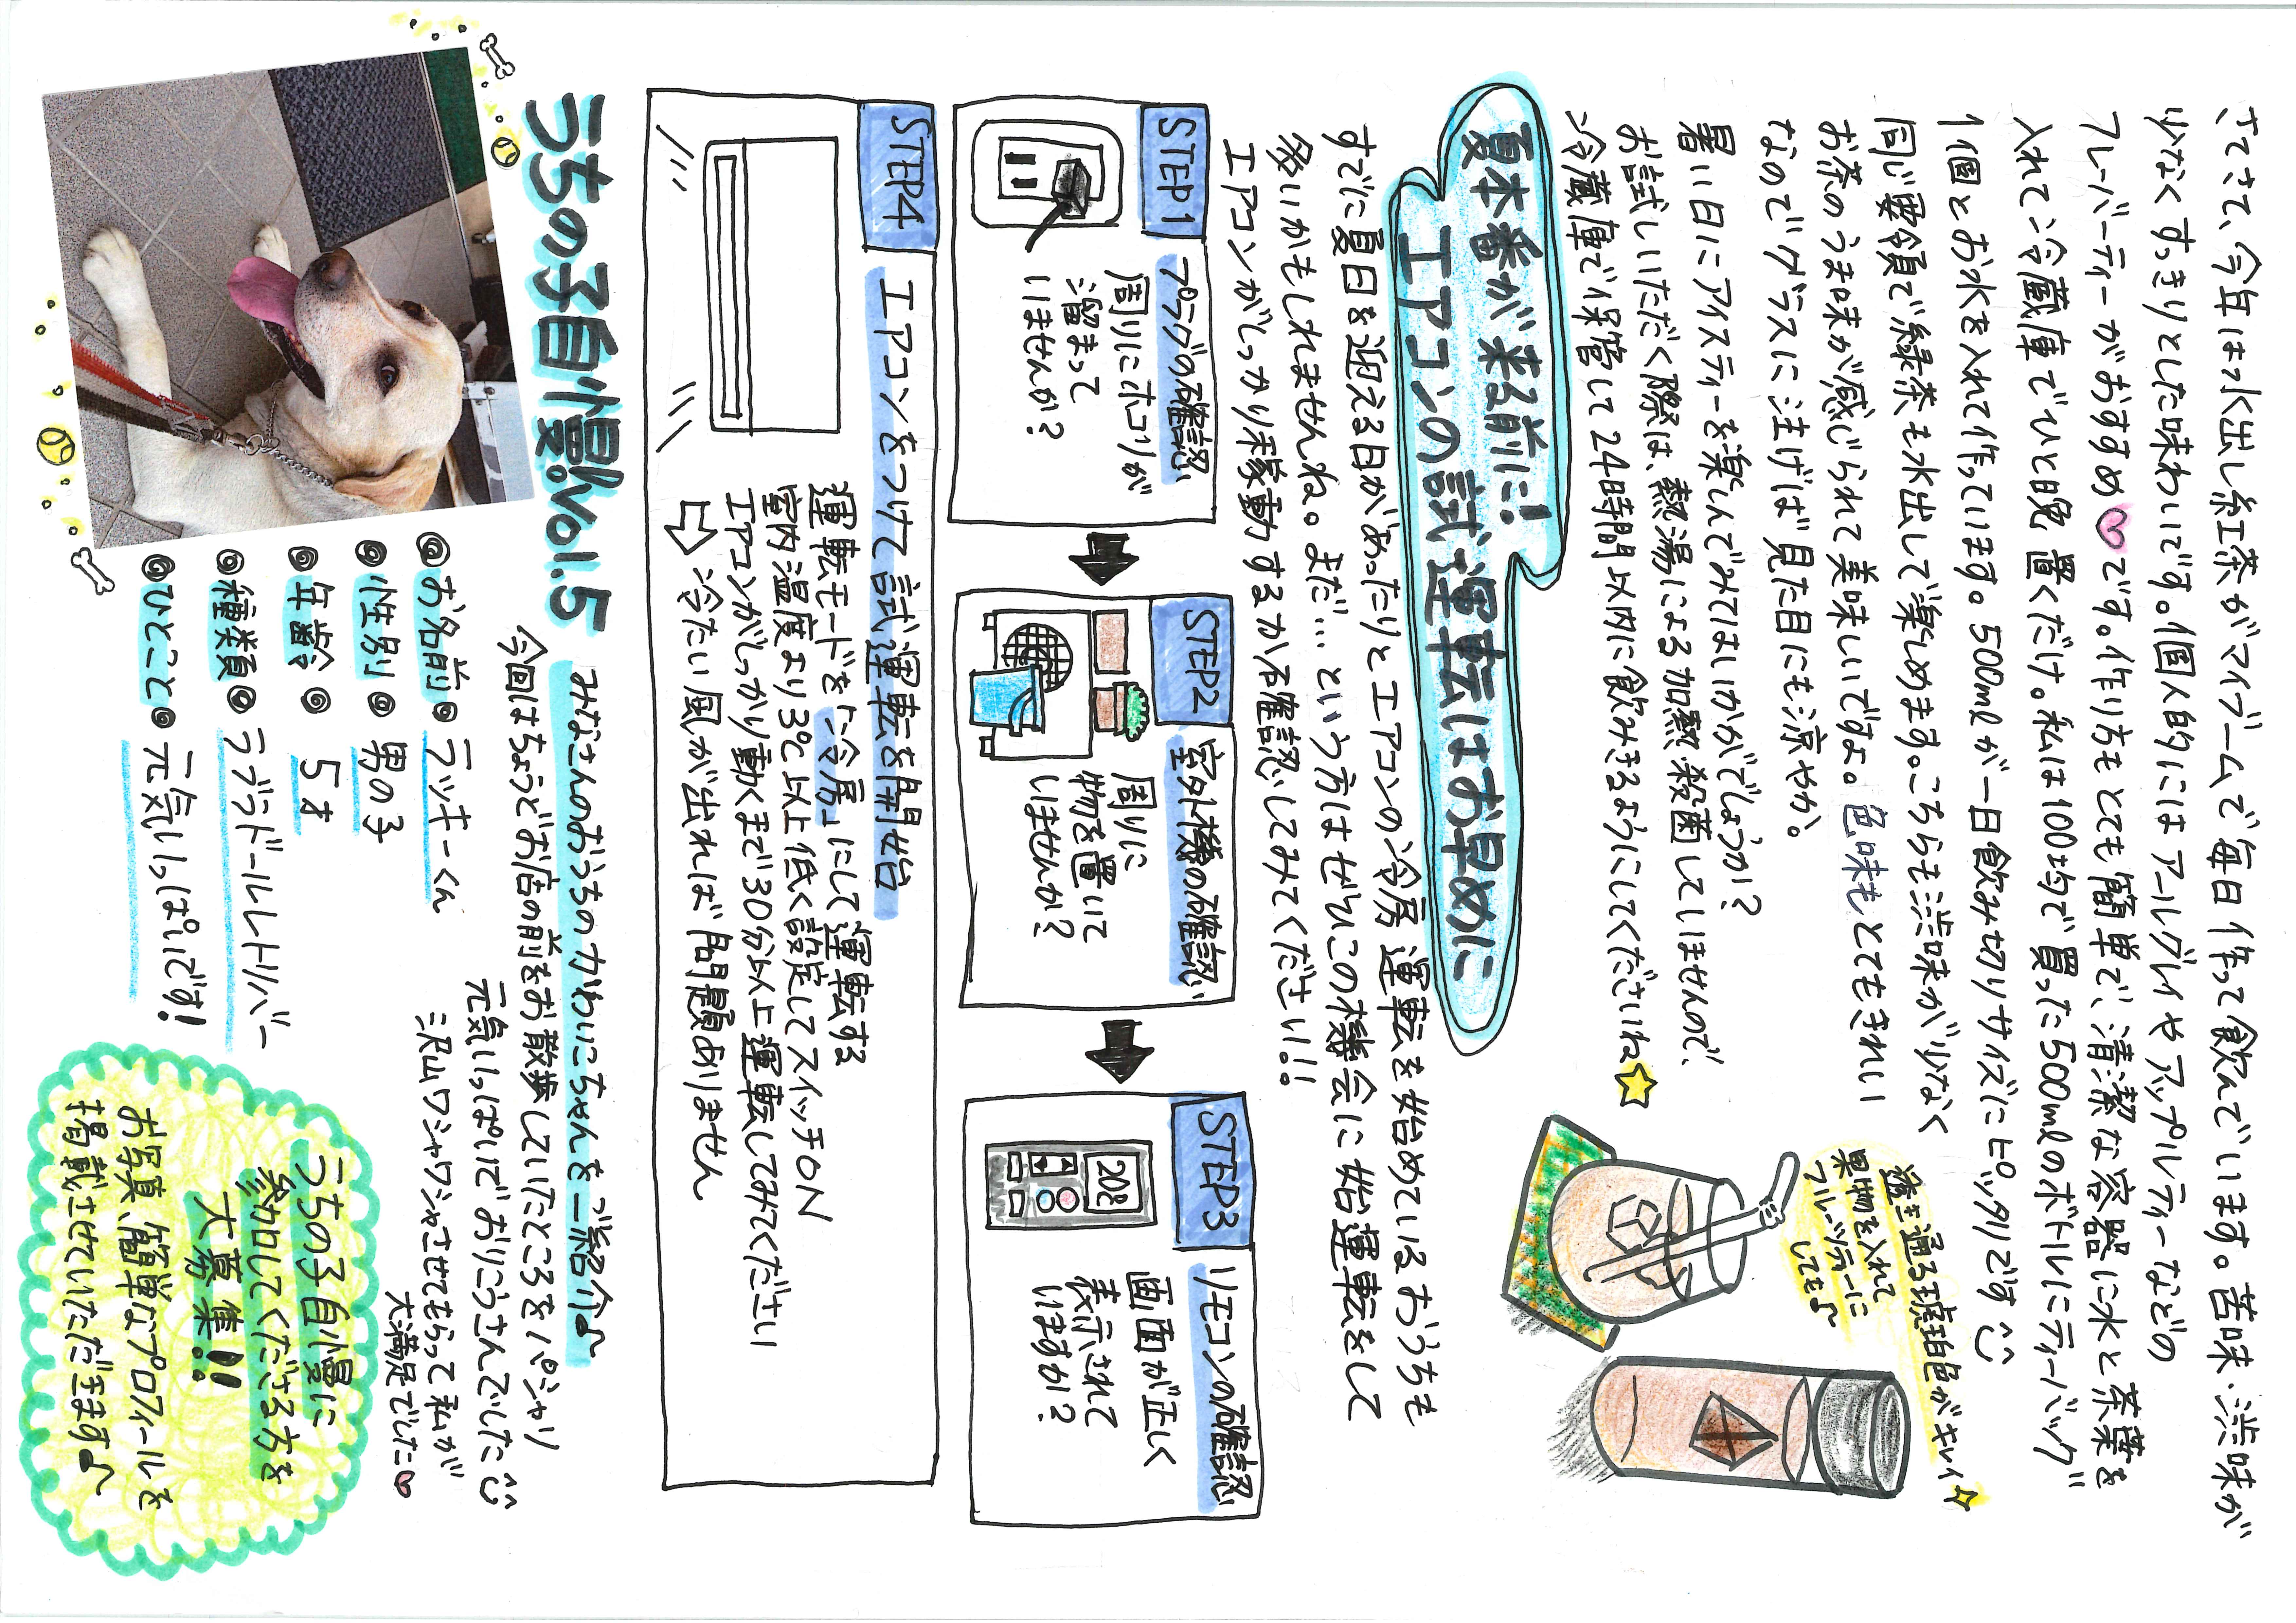 さてさて、今年は水出し紅茶がマイブームで毎日作って飲んでいます。苦味・渋味が
少なくすっきりとした味わいです。個人的にはアールグレイやアップルティーなどの
フレーバーティーがおすすめ♡です。作り方もとても簡単で、清潔な容器に水と茶葉を
入れて冷蔵庫でひと晩置くだけ。私は100均で買った500mlのボトルにティーバック
1個とお水を入れて作っています。500mlが一日飲み切りサイズにピッタリです
同じ要領で緑茶も水出しで楽しめます。こちらも渋味が少なく
お茶のうま味が感じられて美味しいですよ。色味もとてもきれい
なのでグラスに注げば見た目にも涼やか。
暑い日にアイスティーを楽しんでみてはいかがでしょうか?
お試しいただく際は、熱湯による加熱殺菌していませんので、
冷蔵庫で保管して24時間以内に飲みきるようにしてくださいね☆
透き通る琥珀色がキレイ☆
果物を入れて
フルーツティーに
しても♪
夏本番が来る前に!
エアコンの試運転はお早めに
すでに夏日を迎える日があったりとエアコンの冷房運転を始めているおうちも
多いかもしれませんね。まだ…という方はぜひこの機会に始運転をして
エアコンがしっかり稼動するか確認してみてください!!
STEP1
プラグの確認
周りにホコリが
溜まって
いませんか?
STEP2
室外機の確認
周りに
物を置いて
いませんか?
STEP3
リモコンの確認
画面が正しく
表示されて
いますか?
STEP4
エアコンをつけて試運転を開始
運転モードを「冷房」にして運転する
室内温度より3℃以上低く設定してスイッチON
エアコンがしっかり動くまで30分以上運転してみてください
⇨冷たい風が出れば問題ありません
うちの子自慢Vol.5
みなさんのおうちのかわいこちゃんをご紹介♪
今回はちょうどお店の前をお散歩していたところをパシャリ
元気いっぱいでおりこうさんでした
沢山ワシャワシャさせてもらって私が
大満足でした♡
◎お名前◎ ラッキーくん
◎性別◎ 男の子
◎年齢◎ 5才
◎種類◎ ラブラドールレトリバー
◎ひとこと◎ 元気いっぱいです!
うちの子自慢に
参加してくださる方を
大募集!!
お写真、簡単なプロフィールを
掲載させていただきます♪